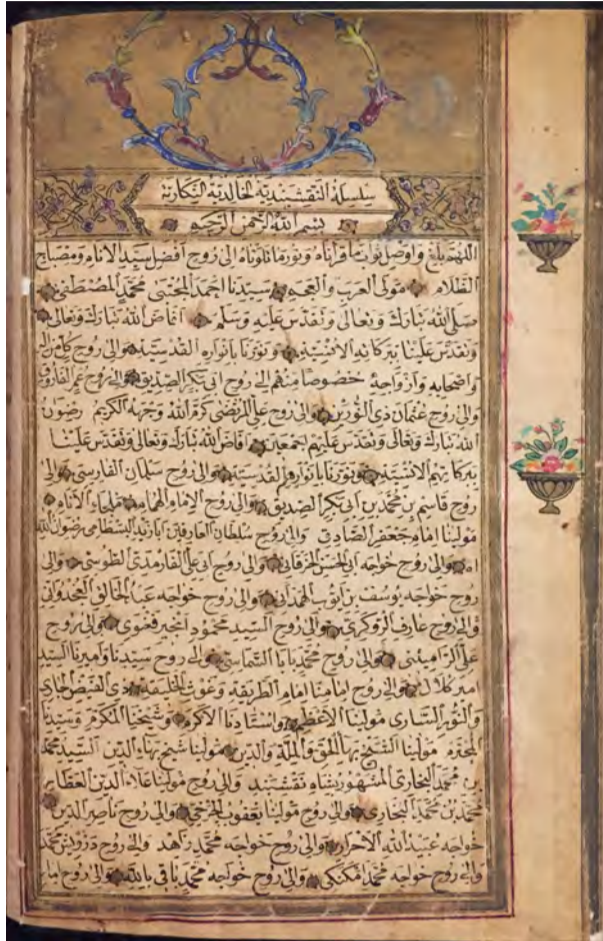 سلسلة النقشبندية الخالدية
بسم الله الرحمن الرحيم
اللهم بلغ واوصل ثواب ما قرأناه ونور ما تلوناه الى روح افضل سيد الانام ومصباح
الظلام مولى العرب والعجم سيدنا احمد المجتبى محمد المصطفى
صلى الله تبارك وتعالى وتقدس عليه وسلم افاض الله تبارك وتعالى
وتقدس علينا ببركاته الانسية ونورنا بانواره القدسية والى روح
واصحابه وازواجه خصوصا منهم الى روح ابى بكر الصديق والى روح عمر الفاروق
والى روح عثمان ذى النورين والى روح على المرتضى كرم الله وجهه الكريم رضوان
الله تبارك وتعالى وتقدس عليهم اجمعين افاض الله تبارك وتعالى وتقدس علينا
ببركاتهم الانسية ونورنا بانوارهم القدسية والى روح سلمان الفارسى والى
روح قاسم بن محمد بن ابى بكر الصديق والى روح الامام الهمام الانام
مولينا امام جعفر الصادق والى روح سلطان العارفين ابايزيد البسطامى رضوان الله
والى روح خواجه ابى الحسن الخرقانى والى روح ابى على الفارمدى الطوسى والى
روح خواجه يوسف بن ايوب الهمدانى والى روح خواجه عبد الخالق الغجدوانى
والى روح عارف الريوكرى والى روح السيد محمود انجير فغنوى والى روح
على الراميتنى والى روح محمد بابا السماسى والى روح سيدنا واميرنا السيد
امير كلال والى روح امامنا امام الطريقة وغوث الخليقة ذى الفيض الجارى
والنور السارى مولينا الاعظم واستادنا الاكرم وشيخنا المكرم وسيدنا
المحترم مولينا الشيخ بهاء الحق والملة والدين مولينا شيخ بهاء الدين السيد محمد
بن محمد البخارى المشهور بشاه نقشبند والى روح مولينا علاء الدين العطار
محمد بن محمد البخارى والى روح مولينا يعقوب الجرخى والى روح ناصر الدين
خواجه عبيد الله الاحرار والى روح خواجه محمد زاهد والى روح درويش محمد
والى روح خواجه محمد امكنكى والى روح خواجه محمد باقى بالله والى روح امام